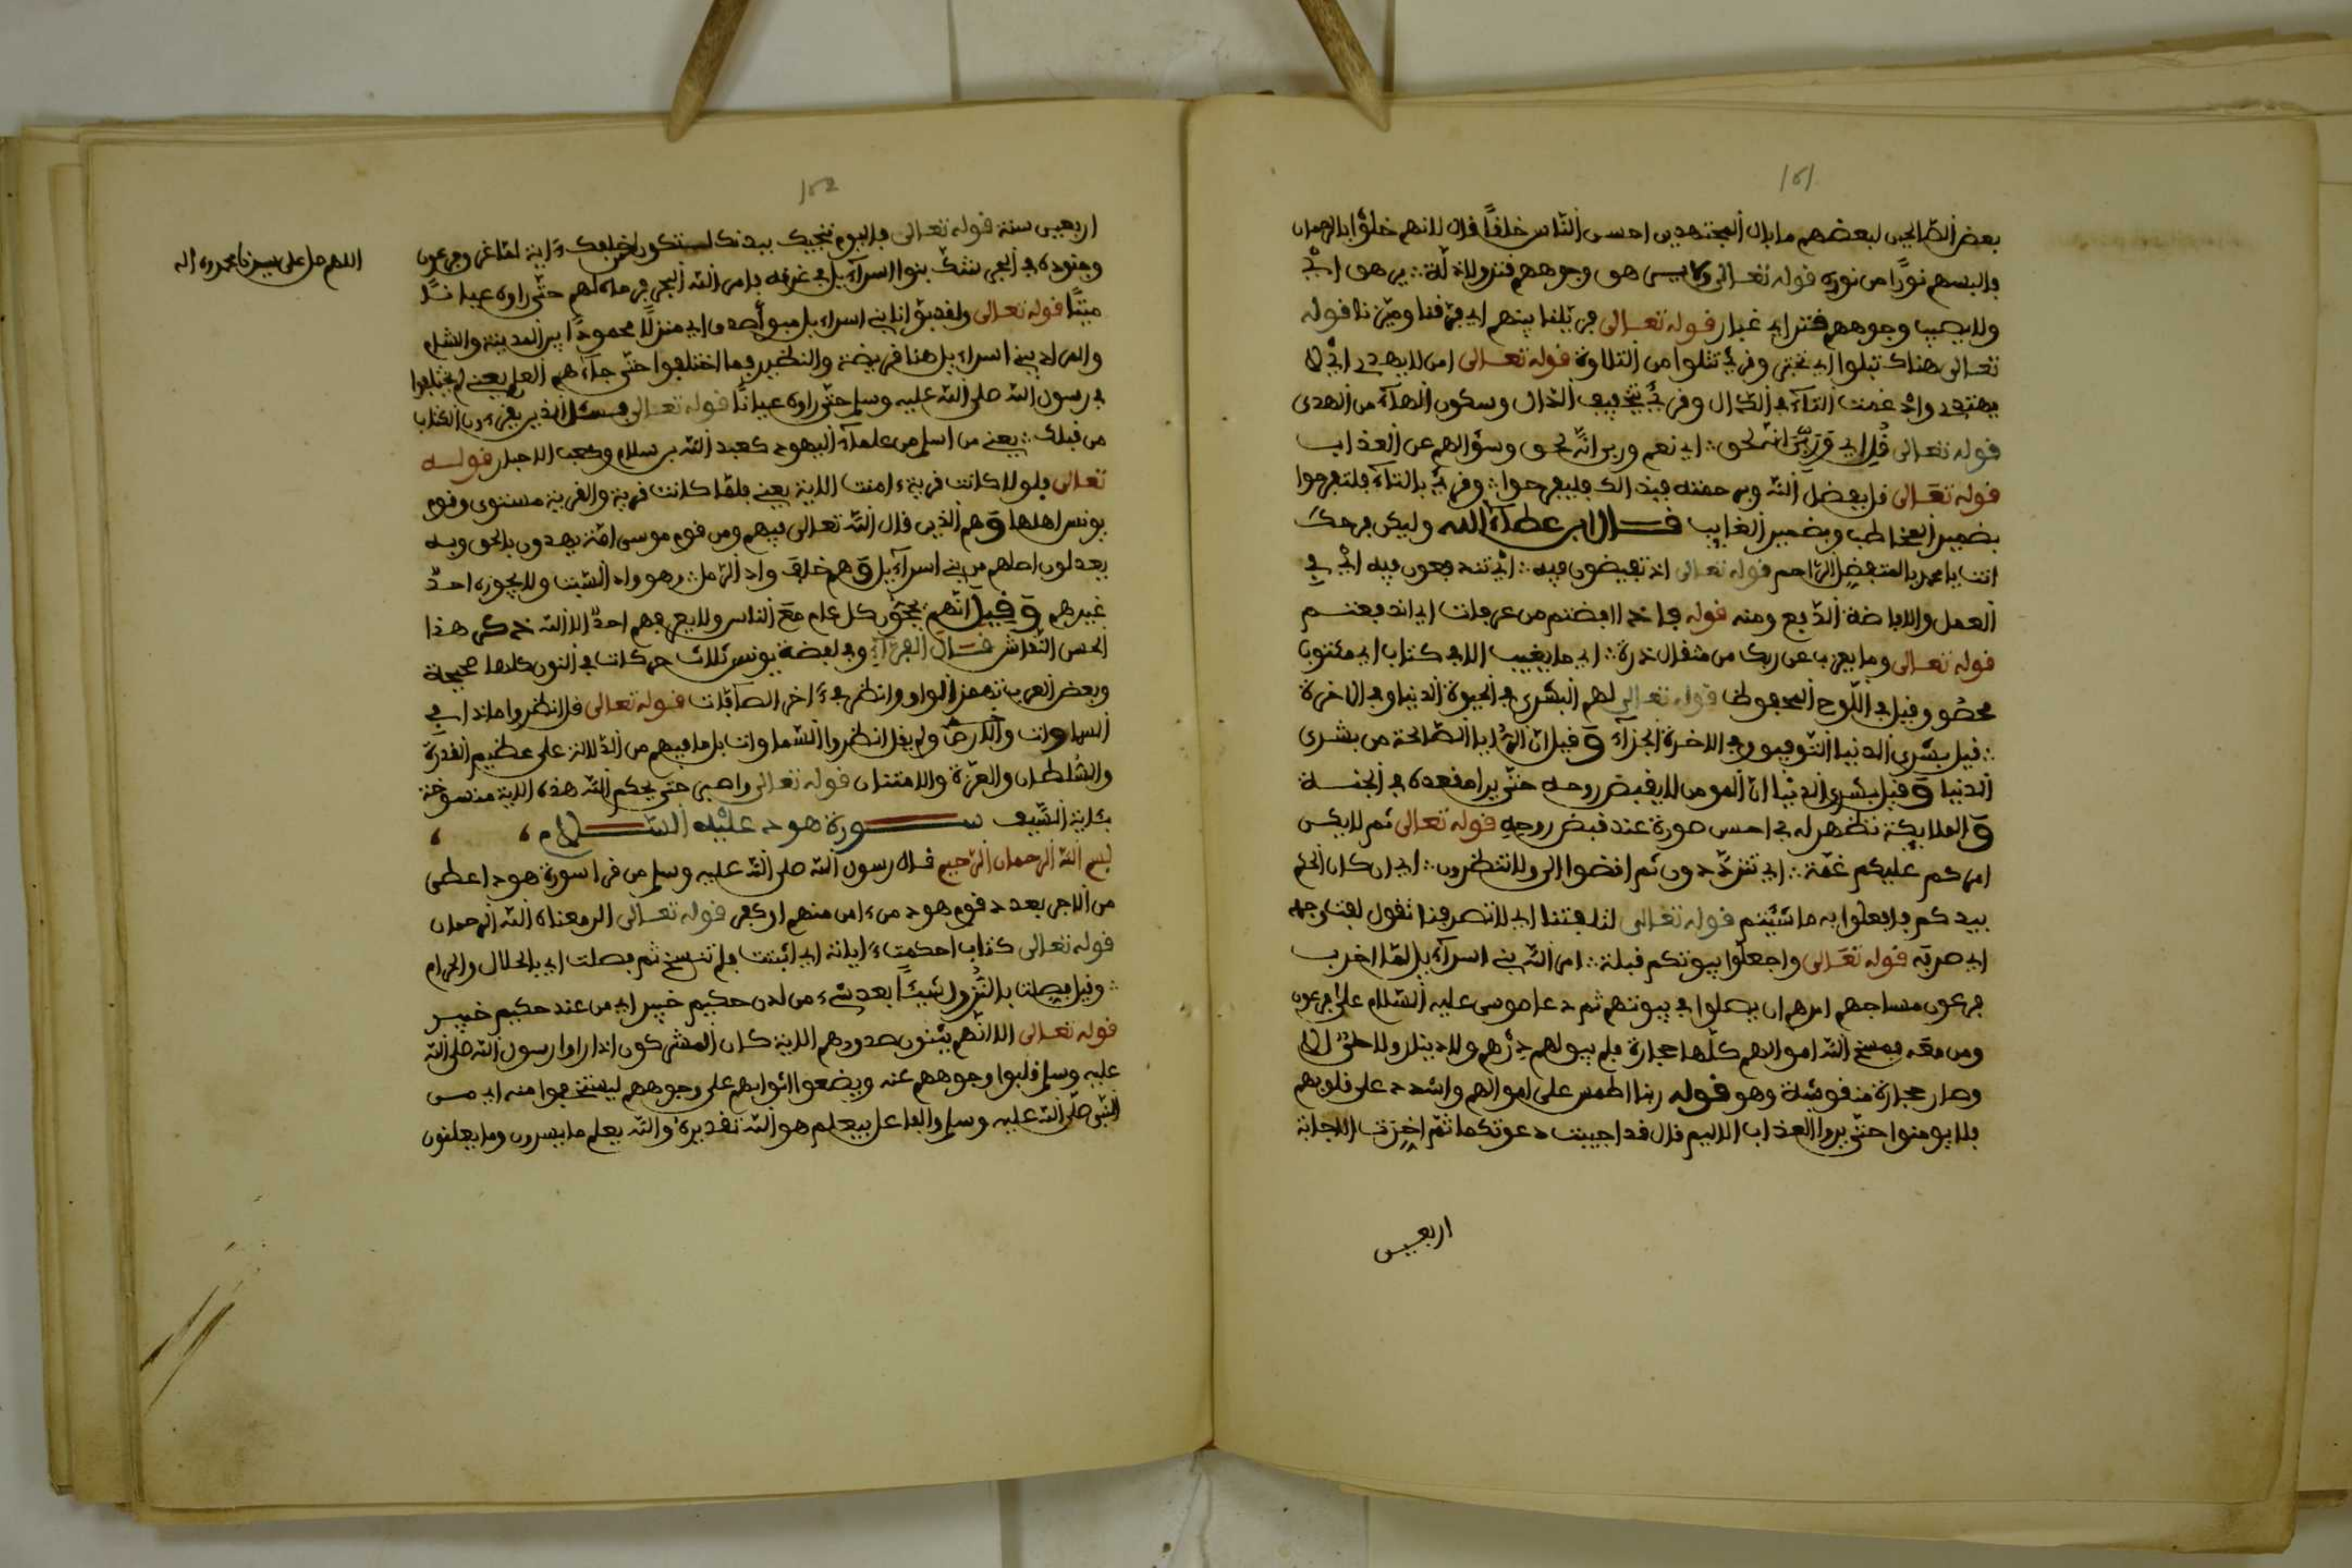 151
بعض الصالحين لبعضهم ما بال المجتهدين احسن الناس خلقا قال لانهم خلوا بالرحمان
فالبسهم نورا من نوره قوله تعالى ولا يرهق وجوههم قتر ولا ذلة يرهق اي
ولا يصيب وجوههم قتر اي غبار قوله تعالى فزيلنا بينهم اي فرقنا وميزنا قوله
تعالى هنالك تبلوا اي تختبر وقرئ تتلوا من التلاوة قوله تعالى امن لا يهدي اي لا
يهتدي واذ غمت التاء في الدال وقرئ بتخفيف الدال وسكون الهاء من الهدى
قوله تعالى قل اي وربي انه لحق اي نعم وربي انه لحق وسؤالهم عن العذاب
قوله تعالى قل بفضل الله وبرحمته فبذالك فليفرحوا وقرئ بالتاء فلتفرحوا
بضمير المخاطب وبضمير الغايب قال ابن عطاء الله وليكن فرحك
انت يا محمد بالمتفضل الراحم قوله تعالى اذ تفيضون فيه اي تندفعون فيه اي في
العمل والافاضة الدفع ومنه قوله فاذا افضتم من عرفات اي اندفعتم
قوله تعالى وما يعزب عن ربك من مثقال ذرة اي ما يغيب الا في كتاب اي مكتوب
محصو وقيل في اللوح المحفوظ قوله تعالى لهم البشرى في الحيوة الدنيا وفي الاخرة
قيل بشرى الدنيا التوفيق وفي الاخرة الجزاء وقيل ان الرؤيا الصالحة من بشرى
الدنيا وقيل بشرى الدنيا ان المومن لا يقبض روحه حتى يرا مقعده في الجنة
والملايكة تظهر له في احسن صورة عند قبض روحه قوله تعالى ثم لا يكن
امركم عليكم غمة اي تترددون ثم اقضوا الي ولا تنظرون اي ان كان الحكم
بيدكم فافعلوا به ما شيتم قوله تعالى لتلفتنا اي لتصرفنا تقول لفت وجهه
اي صرفه قوله تعالى واجعلوا بيوتكم قبلة امر الله بني اسراءيل لما اخرب
فرعون مساجهم امرهم ان يصلوا في بيوتهم ثم دعا موسى عليه السلام على فرعون
ومن معه فمسخ الله اموالهم كلها حجارة فلم يبق لهم درهم ولا دينار ولا حلي الا
وصار حجارة منقوشة وهو قوله ربنا اطمس على اموالهم واشدد على قلوبهم
فلا يومنوا حتى يروا العذاب الاليم قال قد اجيبت دعوتكما ثم اخرت الاجابة
اربعين
152
اربعين سنة قوله تعالى فاليوم ننجيك ببدنك لتكون لمن خلفك ءاية لما غرق فرعون
وجنوده في البحر شك بنوا اسراءيل في غرقه فامر الله البحر فرماه لهم حتى راوه عيانا
ميتا قوله تعالى ولقد بوانا بني اسراءيل مبوأ صدق اي منزلا محمودا بين المدينة والشام
والمراد ببني اسراءيل هنا قريضة والنظير فما اختلفوا حتى جاءهم العلم يعني لم يختلفوا
في رسول الله صلى الله عليه وسلم حتى راوه عيانا قوله تعالى فسئل الذين يقرءون الكتاب
من قبلك يعني من اسلم من علماء اليهود كعبد الله بن سلام وكعب الاحبار قوله
تعالى فلولا كانت قرية ءامنت الاية يعني فلما كانت قرية والقرية مستوى وقوم
يونس اهلها وهم الذين قال الله تعالى فيهم ومن قوم موسى امة يهدون بالحق وبه
يعدلون اصلهم من بني اسراءيل وهم خلق واد الرمل وهو واد السبت ولا يجوزه احد
غيرهم وقيل انهم يحجون كل عام مع الناس ولا يعرفهم احد الا الله ذكر هذا
الحسن النقاش قال القراء وفي لفضة يونس ثلاث حركات في النون كلها صحيحة
وبعض العرب تهمز الواو وانظر في ءاخر الصافات قوله تعالى قل انظروا ماذا في
السماوات والارض ولم يقل انظروا السماوات بل ما فيهم من الدلالة على عظيم القدرة
والسلطان والعزة والامتنان قوله تعالى واصبر حتى يحكم الله هذه الاية منسوخة
بئاية السيف سورة هود عليه السلام
بسم الله الرحمان الرحيم قال رسول الله صلى الله عليه وسلم من قرا سورة هود اعطي
من الاجر بعدد قوم هود من ءامن منهم او كفر قوله تعالى الر معناه انا الله الرحمان
قوله تعالى كتاب احكمت ءاياته اي اثبتت فلم تنسخ ثم فصلت اي بالحلال والحرام
وقيل فصلنا بالنزول شيئا بعد شيء من لدن حكيم خبير اي من عند حكيم خبير
قوله تعالى الا انهم يثنون صدورهم الاية كان المشركون اذا راوا رسول الله صلى الله
عليه وسلم قلبوا وجوههم عنه ويضعوا اثوابهم على وجوههم ليستخفوا منه اي من
النبي صلى الله عليه وسلم والفاعل بيعلم هو الله تقديره والله يعلم ما يسرون وما يعلنون
اللهم صل على سيدنا محمد وءاله